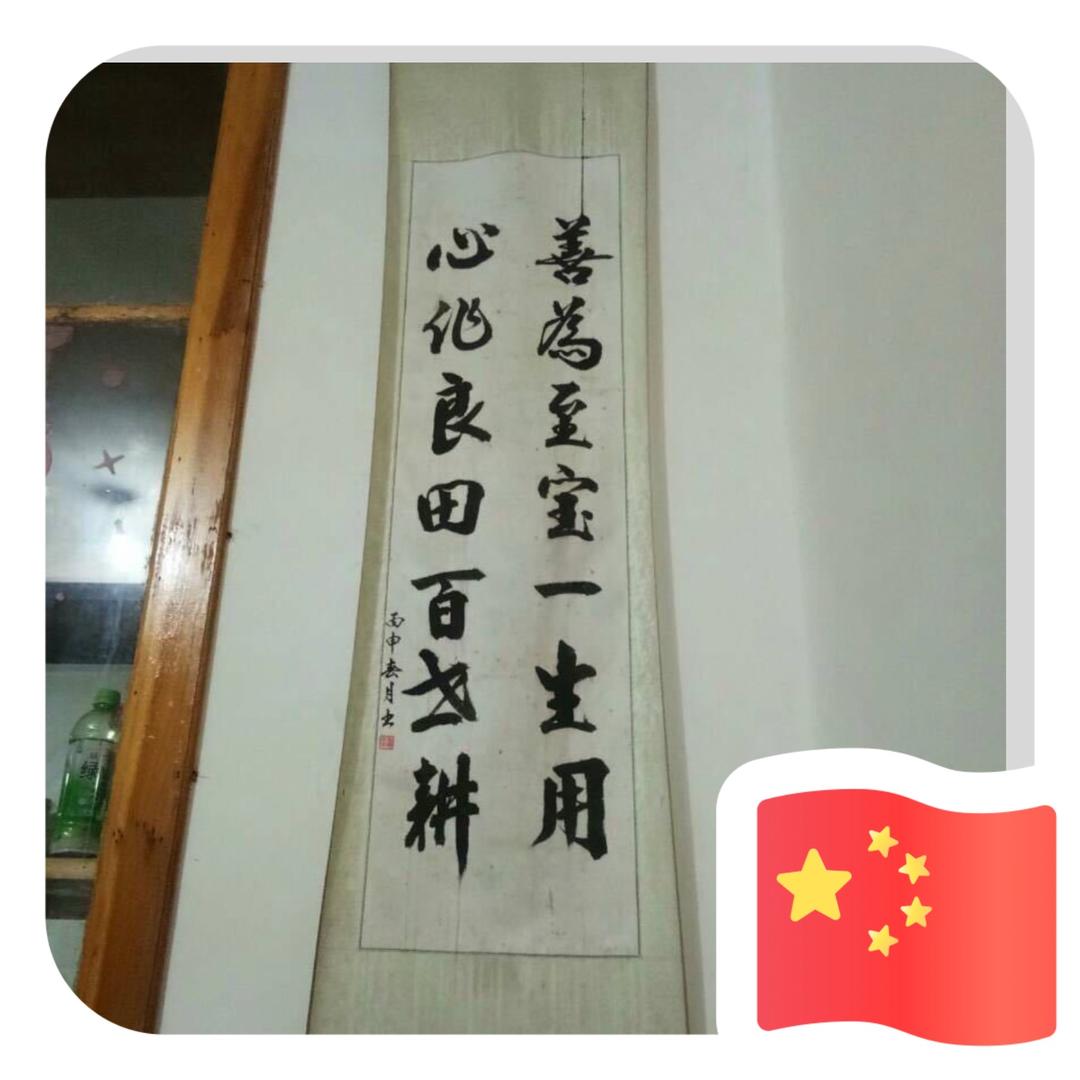 善為至宝一生用
心作良田百世耕
丙申春月书
绿